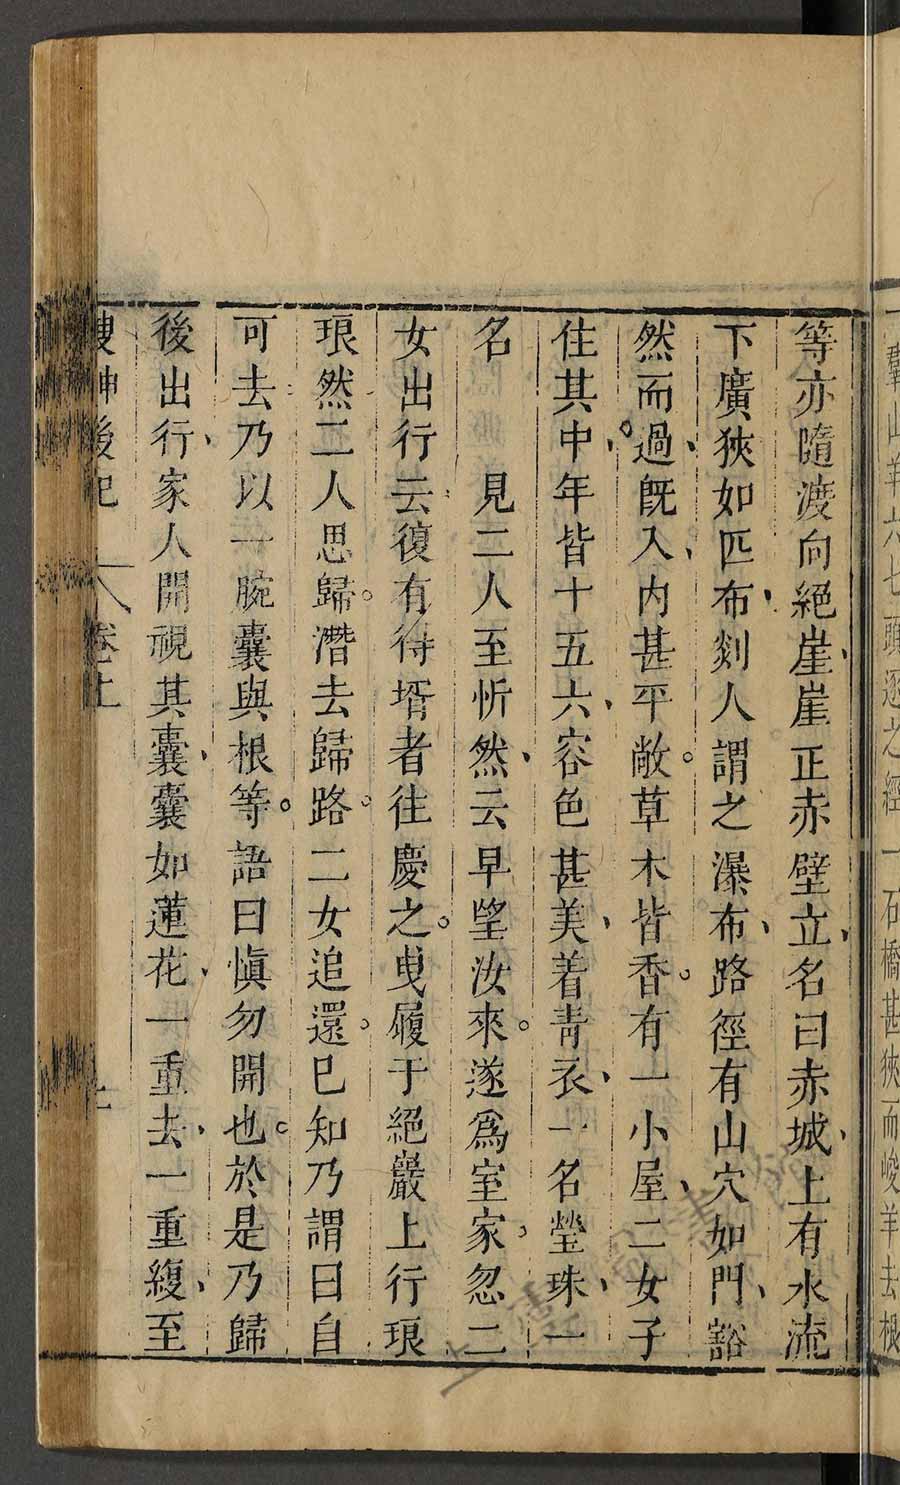 一羣山羊六七頭逐之經一石橋甚狹而峻羊去根
等亦隨渡向絕崖崖正赤壁立名曰赤城上有水流
下廣狹如匹布剡人謂之瀑布路徑有山穴如門豁
然而過既入内甚平敞草木皆香有一小屋二女子
住其中年皆十五六容色甚美着青衣一名瑩珠一
名 見二人至忻然云早望汝來遂爲室家忽二
女出行云復有得壻者往慶之曳履于絕巖上行琅
琅然二人思歸潛去歸路二女追還已知乃謂曰自
可去乃以一腕囊與根等語曰慎勿開也於是乃歸
後出行家人開視其囊囊如蓮花一重去一重複至
搜神後記 卷上